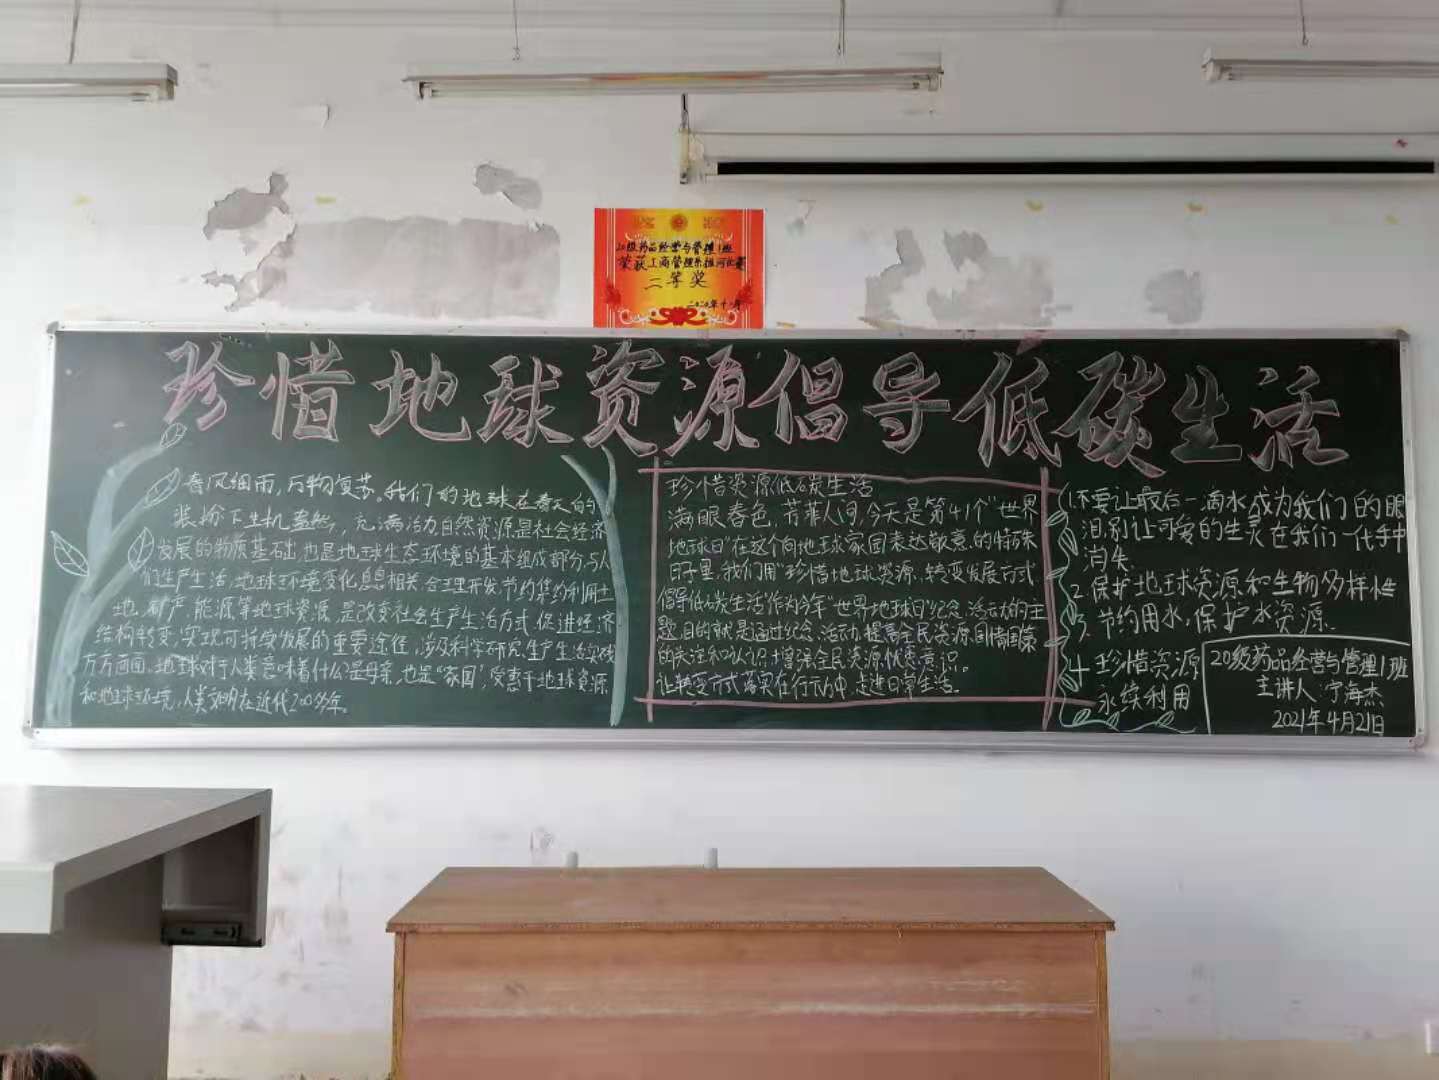 20级药品经营与管理1班
荣获工商管理系推河比赛
二等奖
二〇二〇年十一月
珍惜地球资源倡导低碳生活
春风细雨,万物复苏。我们的地球在春天的
装扮下生机盎然,充满活力自然资源是社会经济
发展的物质基础,也是地球生态环境的基本组成部分与人
们生产生活,地球环境变化息息相关,合理开发,节约集约利用土
地、矿产、能源等地球资源,是改变社会生产生活方式,促进经济
结构转变,实现可持续发展的重要途径,涉及科学研究,生产生活实践
方方面面。地球对于人类意味着什么?是母亲,也是"家园",受惠于地球资源
和地球环境,人类文明在近代200多年。
珍惜资源低碳生活
满眼春色,芳菲人间,今天是第41个"世界
地球日"在这个向地球家园表达敬意的特殊
日子里,我们用"珍惜地球资源,转变发展方式
倡导低碳生活"作为今年"世界地球日"纪念活动的主
题,目的就是通过纪念活动,提高全民资源国情国策
的关注和认识,增强全民资源忧患意识。
让转变方式落实在行动中,走进日常生活。
1.不要让最后一滴水成为我们的眼
泪,别让可爱的生灵在我们一代手中
消失.
2.保护地球资源和生物多样性
3.节约用水,保护水资源.
4.珍惜资源
永续利用
20级药品经营与管理1班
主讲人:宁海杰
2021年4月21日